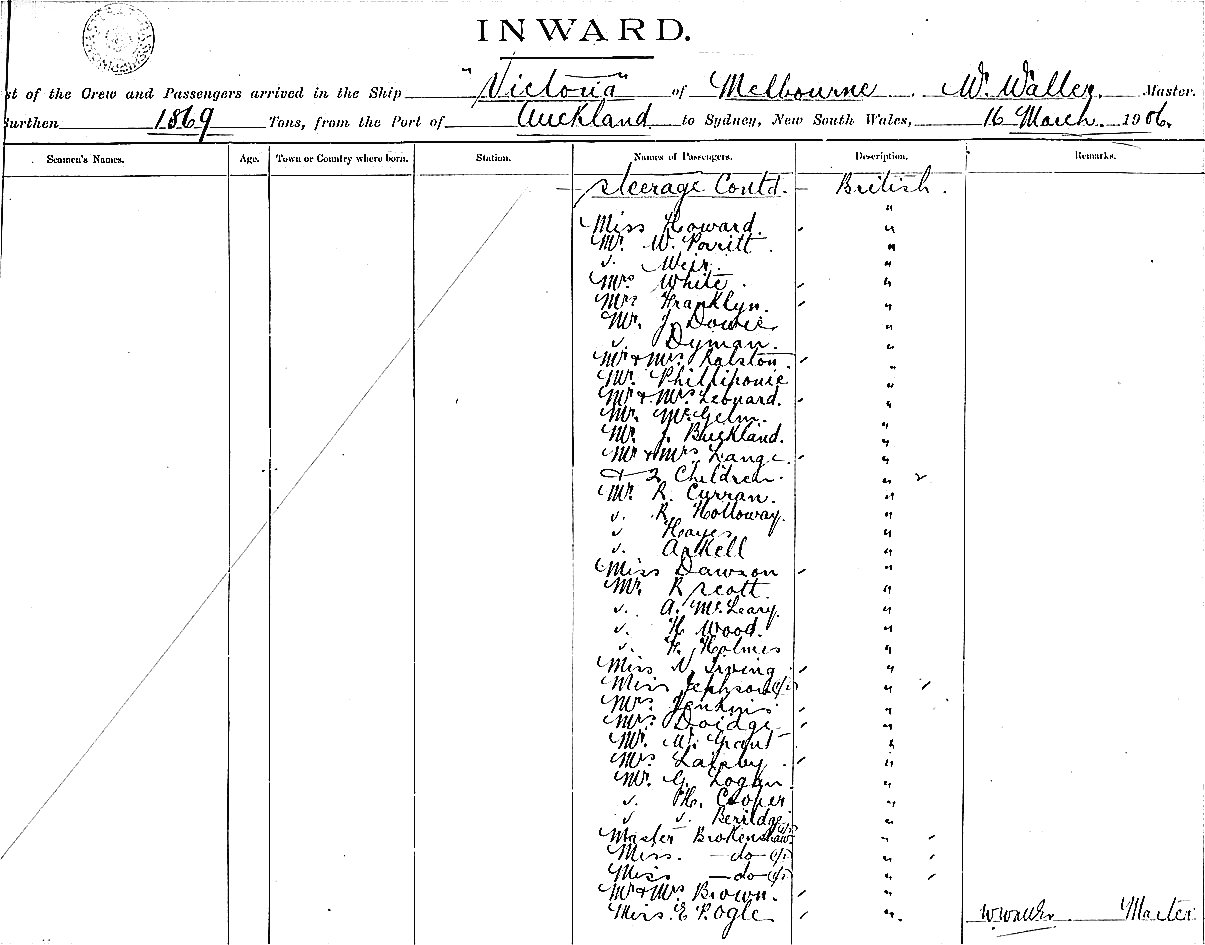 INWARD.
st of the Crew and Passengers arrived in the Ship "Victoria" of Melbourne. W. Waller. Master.
Burthen 1869 Tons, from the Port of Auckland to Sydney, New South Wales, 16 March. 1906.
Seamen's Names. Age. Town or Country where born. Station. Names of Passengers. Description. Remarks.
Steerage Contd. British.
"
Miss Howard. "
Mr. W. Porritt. "
v. Weir. "
Mrs White. "
Mrs Franklyn. "
Mr. J. Dowie "
v. Dyman. "
Mr & Mrs Ralston. "
Mr. "
Mr & Mrs Leonard. "
Mr. "
Mr. J. Buckland. "
Mr & Mrs Lange. "
& 2 Children. " 2
Mr. R. Curran. "
v. R. Holloway. "
v Hayes "
v. Arkell "
Miss Dawson "
Mr. R Scott. "
v. A. McLeary. "
v. H Wood. "
v. Holmes "
Miss N. Irving "
Miss Jephson "
Mrs Jenkins "
Mrs Doidge "
Mr. Grant "
Mrs "
Mr. G. Logan "
v. H. Cooper "
v v. Berildge "
Master Brokenshaw "
Miss. —do— "
Miss —do— "
Mr & Mrs Brown. "
Miss. E. P. Ogle "
W Waller Master